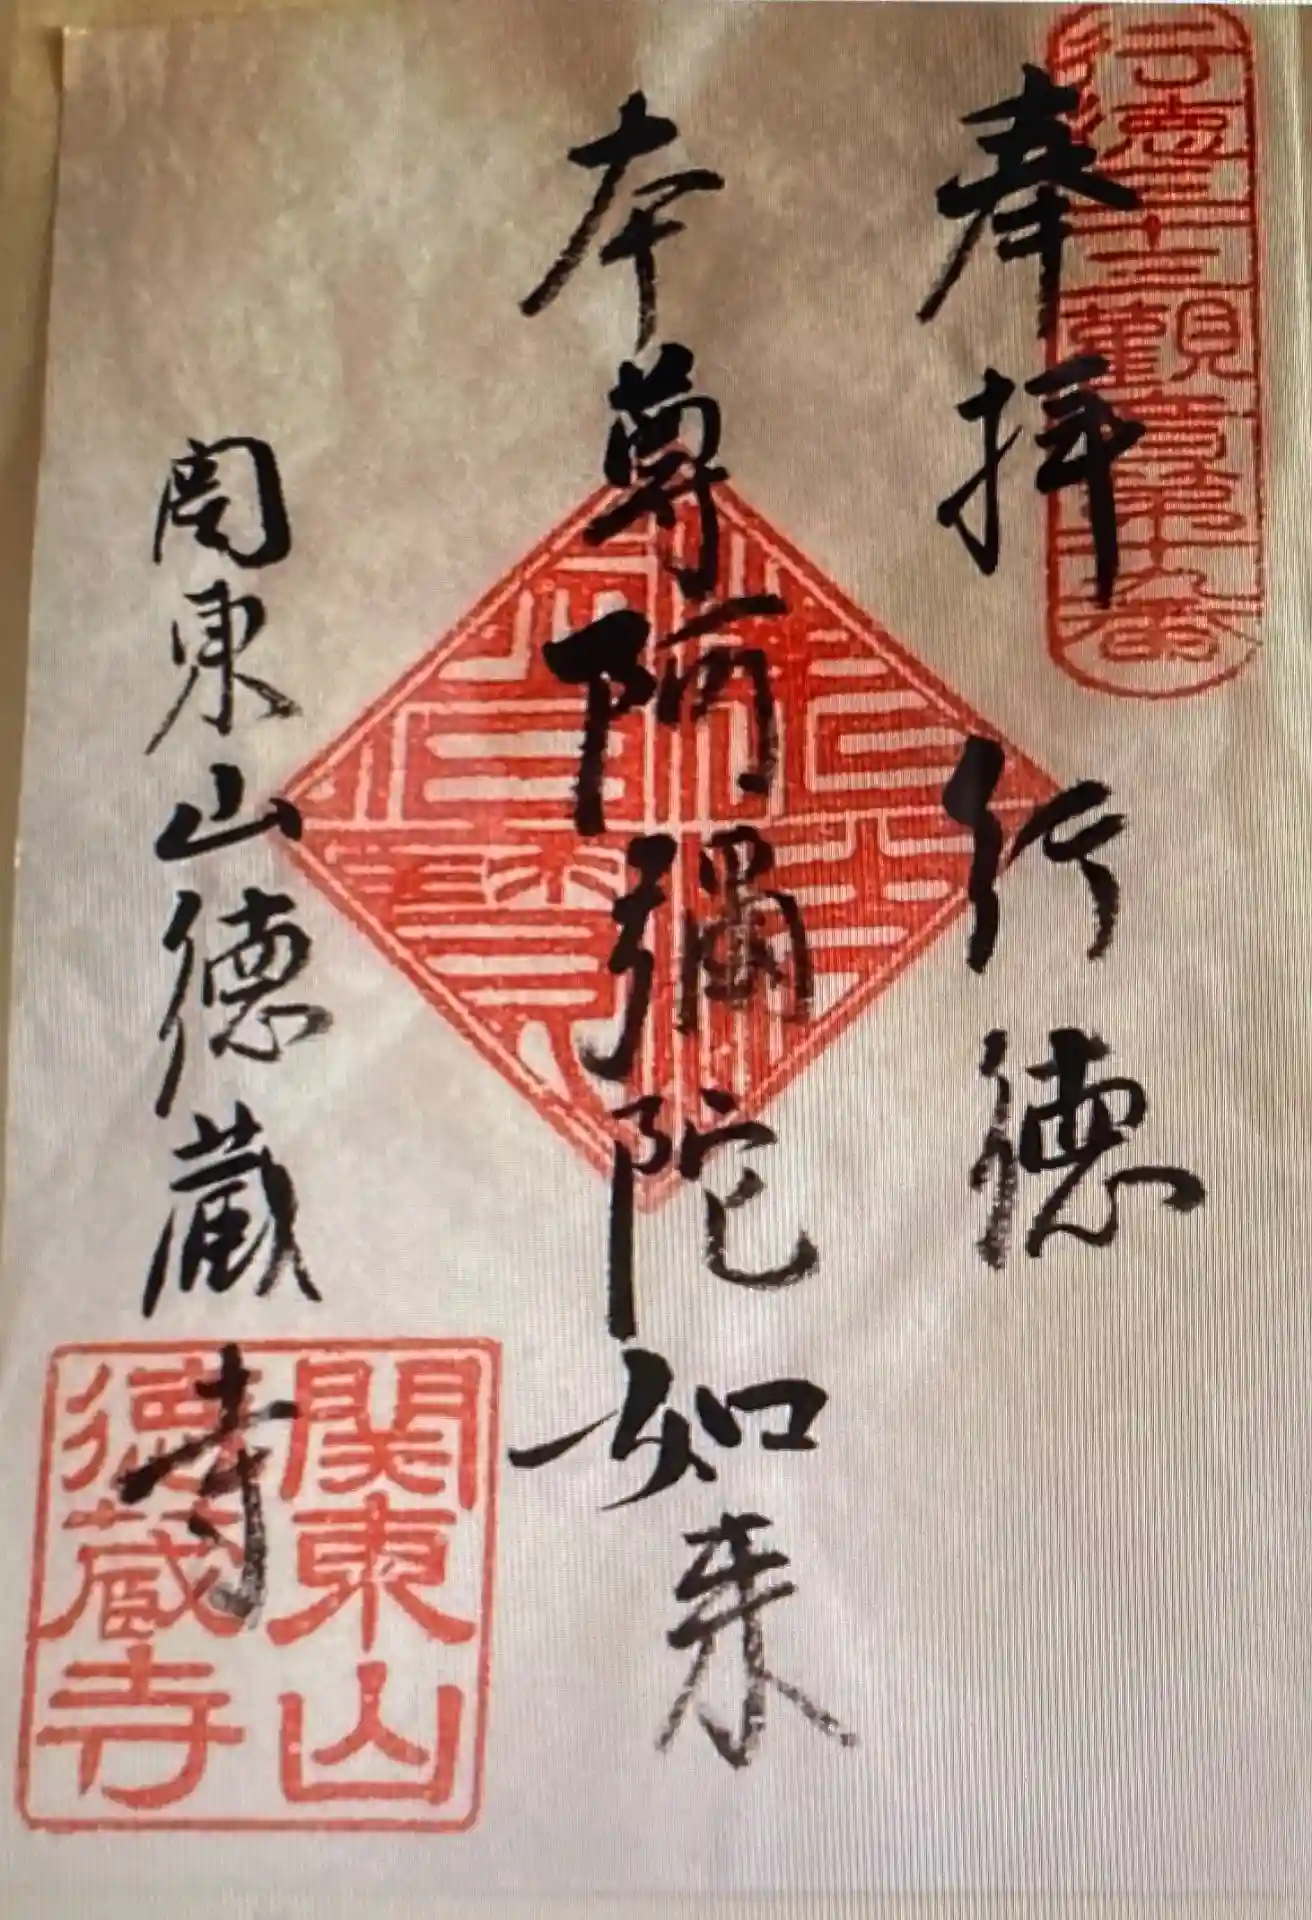 行徳三十三觀音第十九番
奉拝 行徳
本尊阿彌陀如来
関東山徳蔵寺
関東山
徳蔵寺